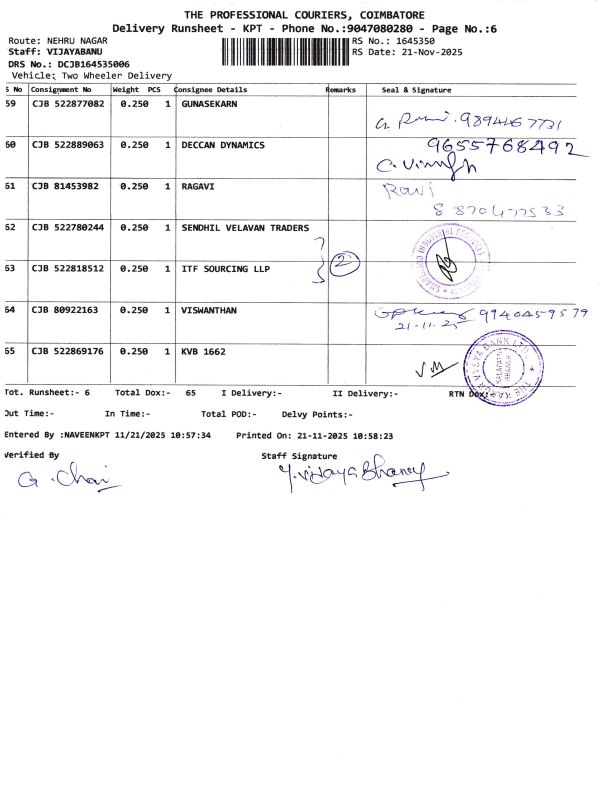 THE PROFESSIONAL COURIERS, COIMBATORE
Delivery Runsheet - KPT - Phone No.:9047080280 - Page No.:6
Route: NEHRU NAGAR RS No.: 1645350
Staff: VIJAYABANU RS Date: 21-Nov-2025
DRS No.: DCJB164535006
Vehicle: Two Wheeler Delivery
S No Consignment No Weight PCS Consignee Details Remarks Seal & Signature
59 CJB 522877082 0.250 1 GUNASEKARN
60 CJB 522889063 0.250 1 DECCAN DYNAMICS 9655768492
61 CJB 81453982 0.250 1 RAGAVI Ravi
62 CJB 522780244 0.250 1 SENDHIL VELAVAN TRADERS
2
63 CJB 522818512 0.250 1 ITF SOURCING LLP
64 CJB 80922163 0.250 1 VISWANTHAN 9940459579
21-11-25
65 CJB 522869176 0.250 1 KVB 1662
Tot. Runsheet:- 6 Total Dox:- 65 I Delivery:- II Delivery:- RTN Dox:-
Out Time:- In Time:- Total POD:- Delvy Points:-
Entered By :NAVEENKPT 11/21/2025 10:57:34 Printed On: 21-11-2025 10:58:23
Verified By Staff Signature